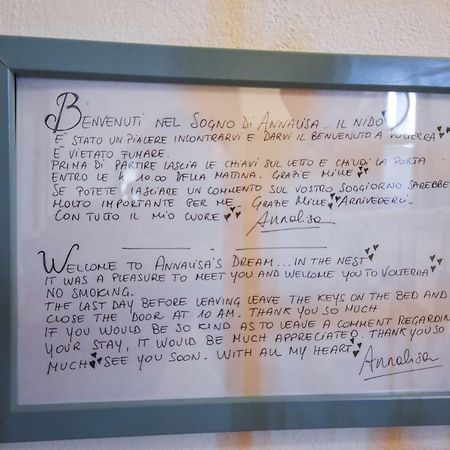 BENVENUTI NEL SOGNO DI ANNALISA... IL NIDO
E' STATO UN PIACERE INCONTRARVI E DARVI IL BENVENUTO A VOLTERRA
E' VIETATO FUMARE.
PRIMA DI PARTIRE LASCIA LE CHIAVI SUL LETTO E CHIUDI LA PORTA
ENTRO LE H 10.00 DELLA MATTINA. GRAZIE MILLE
SE POTETE LASCIARE UN COMMENTO SUL VOSTRO SOGGIORNO SAREBBE
MOLTO IMPORTANTE PER ME. GRAZIE MILLE ARRIVEDERCI.
CON TUTTO IL MIO CUORE Annalisa
WELCOME TO ANNALISA'S DREAM... IN THE NEST
IT WAS A PLEASURE TO MEET YOU AND WELCOME YOU TO VOLTERRA
NO SMOKING.
THE LAST DAY BEFORE LEAVING LEAVE THE KEYS ON THE BED AND
CLOSE THE DOOR AT 10 AM. THANK YOU SO MUCH
IF YOU WOULD BE SO KIND AS TO LEAVE A COMMENT REGARDIN
YOU'R STAY, IT WOULD BE MUCH APPRECIATED. THANK YOU SO
MUCH SEE YOU SOON. WITH ALL MY HEART Annalisa